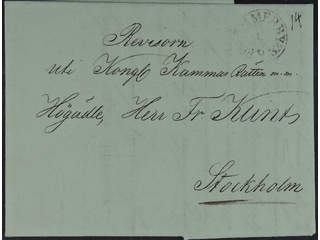 14
Revisorn
uti Kongl Kammar Rätten m.m.
Högädle, Herr Fr Kunts
Stockholm